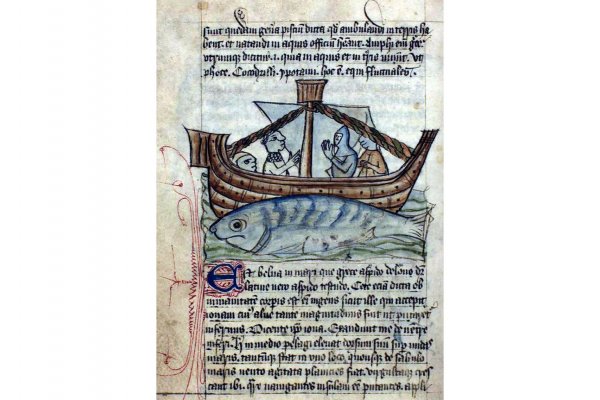 sunt quedam gen̄a pisciū dicta qđ ambulandi in terris ha
bent. et natandi in aquis officiū hēant. Amphi em̄ 
utrumque dicitur .i. quia in aquis et in tr̄is uiuūt. ut
phoce. Cocodrilli. ypotami. hoc ē. equi fluctuales.
Est belua in mari que grece aspido delone dr̄
latine uero aspido testudo. Cete etiā dicta ob
inmanitatem corpis est em̄ ingens sicut ille qui accepit
ionam cuiꝰ aluꝰ tante magnitudinis fuit ut putaret
infernus. Dicente ip̄o iona. Exaudiuit me de uentre
inferi. in medio pelagi eleuat dorsum suū sup̄ undas
maris. tantūque stat in uno loco. quousque de sabulo
maris vento agitata planicies fiat. virgultaque cres
cant ibi. nauigantes insulam eē putantes. appli